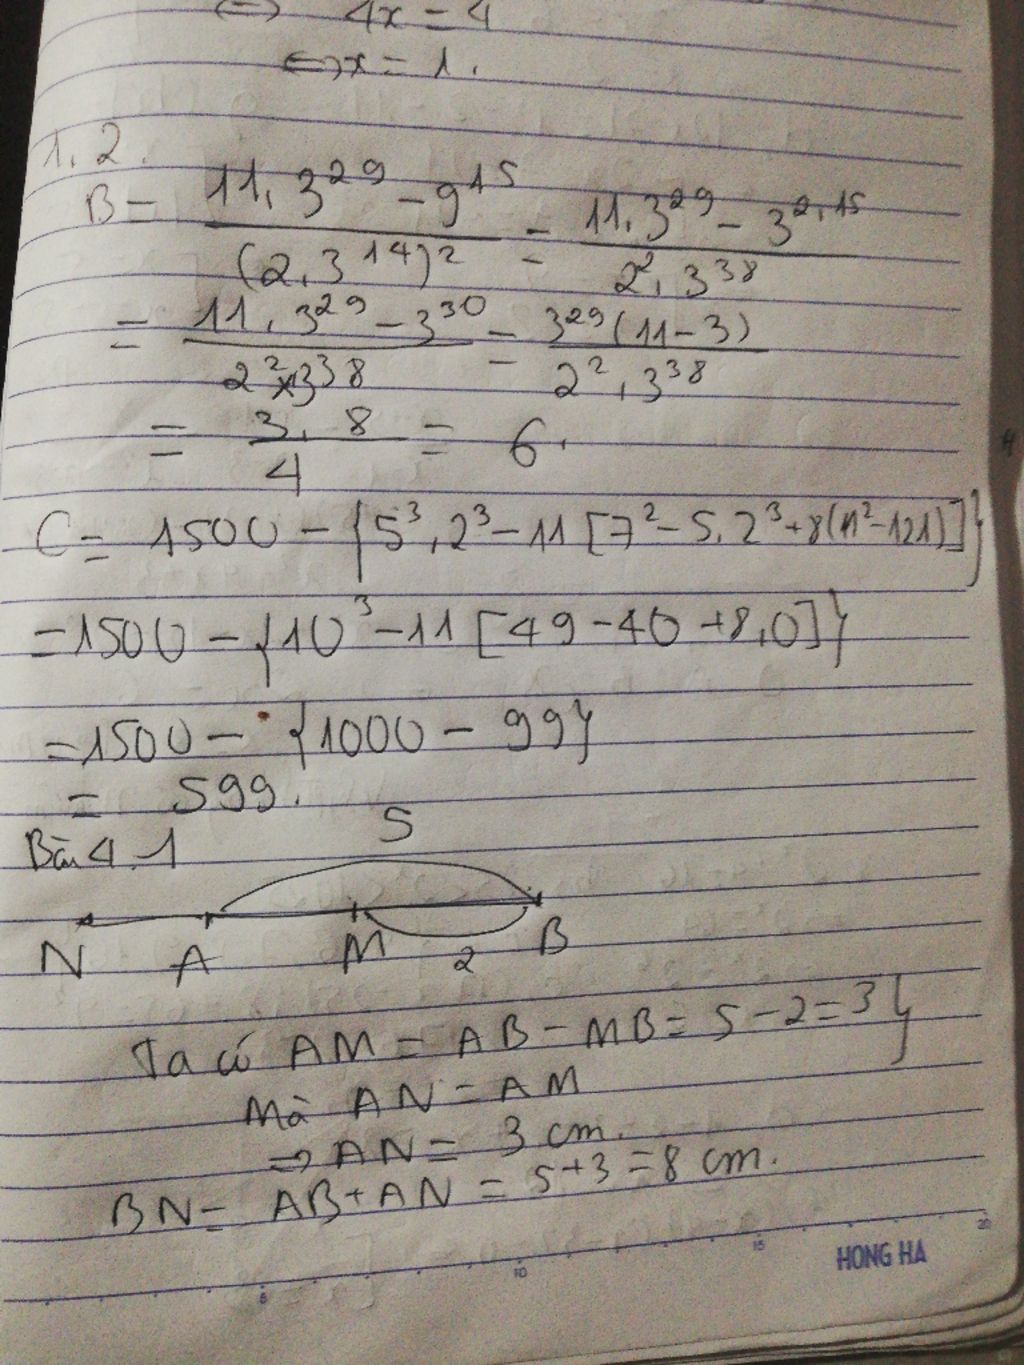 ⇔ 4x = 4
⇔ x = 1.
1.2.
B = \frac{11.3^{29} - 9^{15}}{(2.3^{14})^2} = \frac{11.3^{29} - 3^{2.15}}{2^2.3^{38}}
= \frac{11.3^{29} - 3^{30}}{2^2 x 3^{38}} = \frac{3^{29}(11-3)}{2^2.3^{38}}
= \frac{3.8}{4} = 6.
C = 1500 - {5^3.2^3 - 11[7^2 - 5.2^3 + 8(11^2 - 121)]}
= 1500 - {10^3 - 11[49 - 40 + 8.0]}
= 1500 - {1000 - 99}
= 599.
5
Bài 4.1
N A M 2 B
Ta có AM = AB - MB = 5 - 2 = 3}
Mà AN = AM
⇒ AN = 3 cm.
BN = AB + AN = 5 + 3 = 8 cm.
5 10 15 20
HONG HA